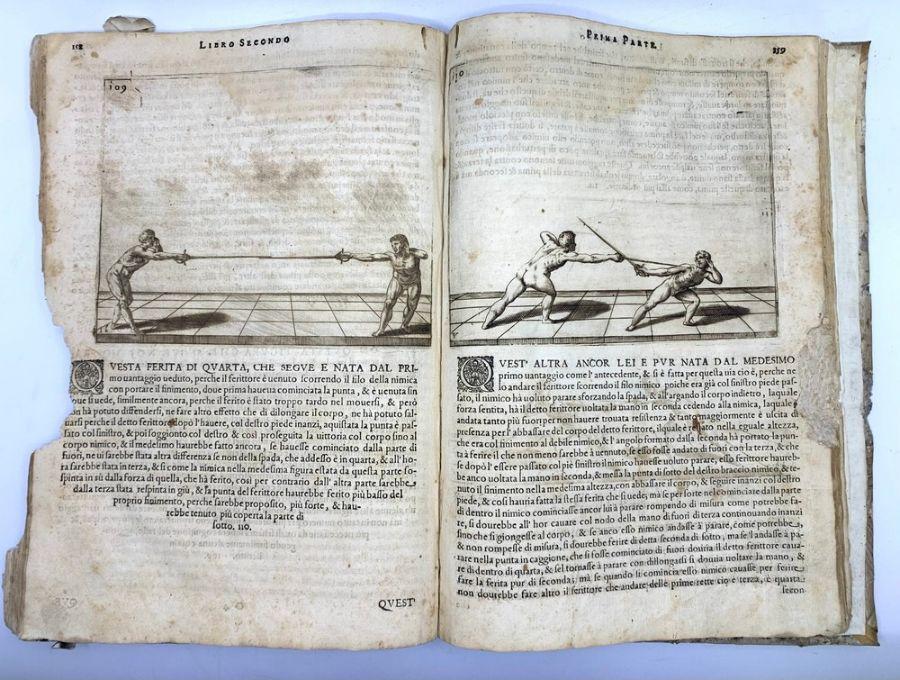 158 LIBRO SECONDO
109
VESTA FERITA DI QVARTA, CHE SEGVE E NATA DAL PRI-
mo uantaggio ueduto, perche il feritore è uenuto scorrendo il filo della nimica
con portare il finimento, doue prima haueua cominciata la punta, & è uenuta sin
oue si uede, similmente ancora, perche il ferito è stato troppo tardo nel mouersi, & però
nõ hà potuto diffendersi, ne fare altro effetto che di dilongare il corpo, ne hà potuto sal-
uarsi perche il detto feritore dopo l'hauere, col destro piede inanzi, aquistata la punta è pas-
sato col sinistro, & poi soggionto col destro & così proseguita la uittoria col corpo sino al
corpo nimico, & il medesimo harebbe fatto ancora, se hauesse cominciato dalla parte di
fuori, ne ui sarebbe stata altra differenza se non della spada, che adesso è in quarta, & all'ho-
ra sarebbe stata in terza, & si come la nimica nella medesima figura è stata da questa parte so-
spinta in sù dalla forza di quella, che hà ferito, così per contrario dall'altra parte sarebbe
dalla terza stata respinta in giù, & la punta del feritore haurebbe ferito più basso del
proprio finimento, perche sarebbe proposito, più forte, & hau-
rebbe tenuto più coperta la parte di
sotto. 110.
QVEST'
PRIMA PARTE. 159
VEST' ALTRA ANCOR LEI E PVR NATA DAL MEDESIMO
primo uantaggio come l'antecedente, & si è fatta per questa uia cio è, perche ne
lo andare il feritore scorrendo il filo nimico poiche era già col sinistro piede pas-
sato, il nimico hà uoluto parare sforzando la spada, & all'argando il corpo indietro, laquale
forza sentita, hà il detto feritore uoltata la mano in seconda cedendo alla nimica, laquale è
andata tanto più fuori per non hauere trouata resistenza & tanto maggiormente è uscita di
presenza per l'abbassare del corpo del detto feritore, ilquale è restato nella eguale altezza,
che era col finimento al debile nimico, & l'angolo formato dalla seconda hà portato la pun-
ta à ferire il che non meno sarebbe è auuenuto, se esso fosse andato di fuori con la terza, & che
se dopò l'essere passato col piè sinistro il nimico hauesse uoluto parare, esso feritore haureb-
be anco uoltata la mano in seconda, & messa la punta di sotto del destro braccio nimico & te-
nuto il finimento nella medesima altezza, con abbassare il corpo, & seguire inanzi col destro
piede, & così hauria fatta la stessa ferita che si uede, mà se per sorte nel cominciare dalla parte
di dentro il nimico cominciasse ancor lui à parare rompendo di misura come potrebbe fa-
re, si dourebbe all'hor cauare col nodo della mano di fuori di terza continuando inanzi
sino che si giongesse al corpo, & se anco esso nimico andasse à parare, come potrebbe,
& non rompesse di misura, si dourebbe ferire di detta seconda di sotto, ma se l'andasse à pa-
rare nella punta in caggione, che si fosse cominciato di fuori douria il detto feritore caua-
re di dentro di quarta, & sel tornasse à parare con dillongarsi si douuia uoltare la mano, &
fare la ferita pur di seconda; mà se quando si comincia esso nimico cauasse per ferire,
non dourebbe fare altro il feritore che andare delle prime rette cio è terza, è quarta
secon